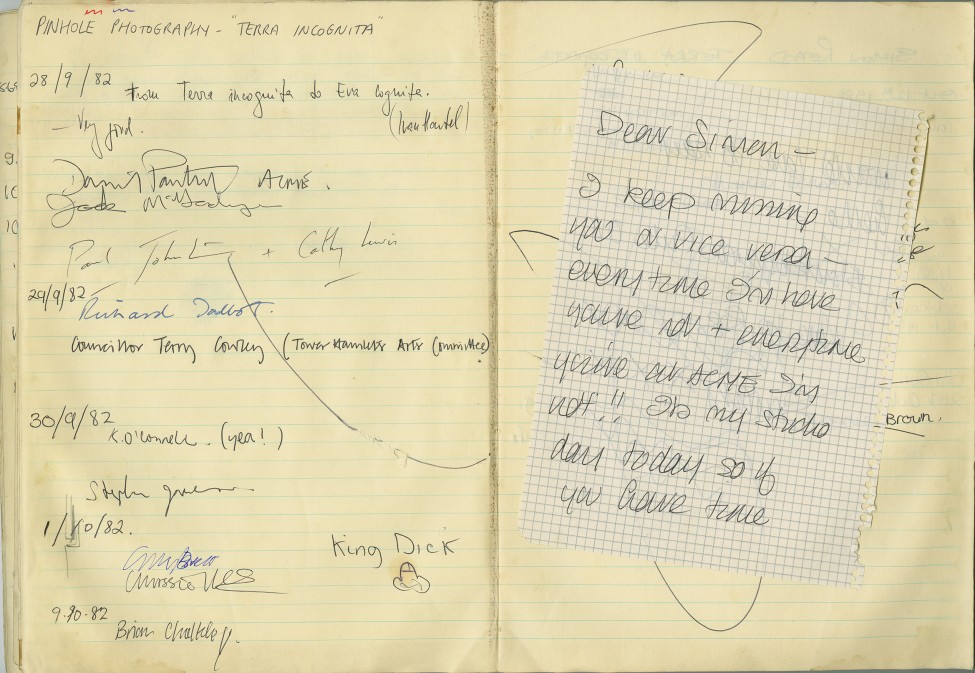 PINHOLE PHOTOGRAPHY - "TERRA INCOGNITA"
28/9/82 From Terra incognita to Eva Cognita.
- Very good.
ACME.
Jock
Paul John + Cathy Lewis
29/9/82 Richard Talbot.
Councillor Terry Cowley (Tower Hamlets Arts Committee)
30/9/82
K.O'Connell. (yea!)
Stephen
1/10/82.
King Dick
9.10.82
Brian Chalkley.
Dear Simon -
I keep missing
you or vice versa -
everytime I'm here
you're not + everytime
you're at ACME I'm
not!! It's my studio
day today so if
you have time
Brown.